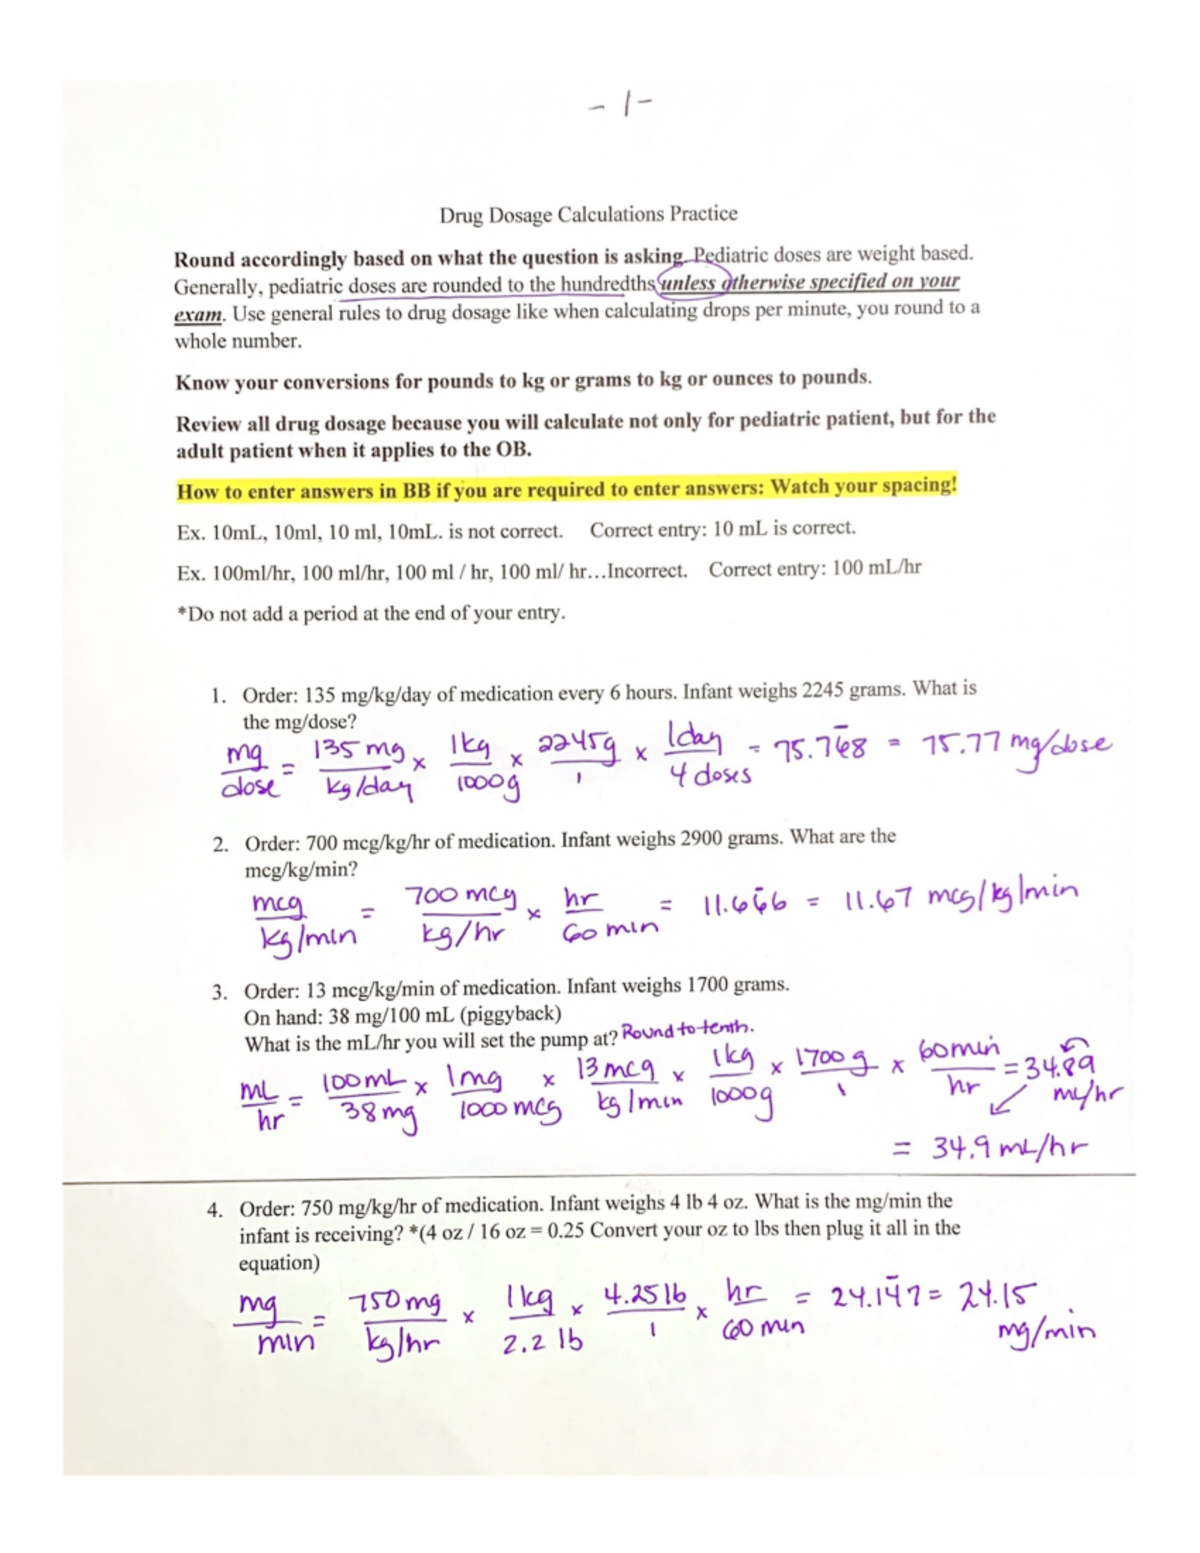 - 1 -
Drug Dosage Calculations Practice
Round accordingly based on what the question is asking. Pediatric doses are weight based.
Generally, pediatric doses are rounded to the hundredths unless otherwise specified on your
exam. Use general rules to drug dosage like when calculating drops per minute, you round to a
whole number.
Know your conversions for pounds to kg or grams to kg or ounces to pounds.
Review all drug dosage because you will calculate not only for pediatric patient, but for the
adult patient when it applies to the OB.
How to enter answers in BB if you are required to enter answers: Watch your spacing!
Ex. 10mL, 10ml, 10 ml, 10mL. is not correct. Correct entry: 10 mL is correct.
Ex. 100ml/hr, 100 ml/hr, 100 ml / hr, 100 ml/ hr…Incorrect. Correct entry: 100 mL/hr
*Do not add a period at the end of your entry.
1. Order: 135 mg/kg/day of medication every 6 hours. Infant weighs 2245 grams. What is
the mg/dose?
mg/dose = 135 mg/kg/day x 1kg/1000g x 2245g/1 x 1day/4 doses = 75.768 = 75.77 mg/dose
2. Order: 700 mcg/kg/hr of medication. Infant weighs 2900 grams. What are the
mcg/kg/min?
mcg/kg/min = 700 mcg/kg/hr x hr/60 min = 11.666 = 11.67 mcg/kg/min
3. Order: 13 mcg/kg/min of medication. Infant weighs 1700 grams.
On hand: 38 mg/100 mL (piggyback)
What is the mL/hr you will set the pump at? Round to tenth.
mL/hr = 100mL/38mg x 1mg/1000 mcg x 13mcg/kg/min x 1kg/1000g x 1700g/1 x 60min/hr = 34.89 mL/hr
= 34.9 mL/hr
4. Order: 750 mg/kg/hr of medication. Infant weighs 4 lb 4 oz. What is the mg/min the
infant is receiving? *(4 oz / 16 oz = 0.25 Convert your oz to lbs then plug it all in the
equation)
mg/min = 750mg/kg/hr x 1kg/2.2 lb x 4.25 lb/1 x hr/60 min = 24.147 = 24.15 mg/min